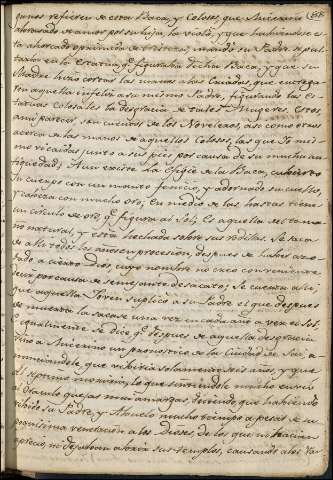 gunos refieren de esta Baca, y Colosos, que Micerino
enamorado de amores por su hija, la violò, y que habiendose es-
ta ahorcado oprimida de tristeza, mandó su Padre sepul-
tarse en la Estatua qe. figuraba dicha Baca, y que su
Madre hizo cortar las manos a las Criadas, que entrega-
ron aquella infeliz a su mismo Padre, figurando las Es-
tatuas Colosales la desgracia de tales Mugeres. Estos,
a mi parecer son cuentos de los Noveleros, asi como otros
acerca de las manos de aquellos Colosos, las que Yo mis-
mo vi caidas junto a sus pies por causa de su mucha an-
tiguedad; Aun existe la Efigie de la Baca, cubierto
su cuerpo con un manto fenicio, y adornado su cuello,
y cabeza con mucho oro; En medio de las hastas tiene
un circulo de oro, qe. figura al Sol; Es aquella de tama-
ño natural, y está hechada sobre sus rodillas. Se saca
de alli todos los años en procesion, despues de haber azo-
tado a cierto Dios, cuyo nombre no creo conveniente
decir por causa de semejante desacato; Se cuenta asi,
que aquella Joven suplicó a su Padre el que despues
de muerta la sacase una vez en cada año a ver el Sol;
e igualmente se dice qe. despues de aquella desgracia
vino a Micerino un pronostico de la Ciudad de
anunciandole, que viviria solamente seis años, y que
al septimo moriria; lo que sintiendole mucho envió
al Oraculo quejas muy amargas diciendo que habiendo
vivido su Padre, y Abuelo mucho tiempo a pesar de su
poquisima veneracion a los Dioses, de los que ni hacian
aprecio, ni dejaban abrir sus templos, causando a los